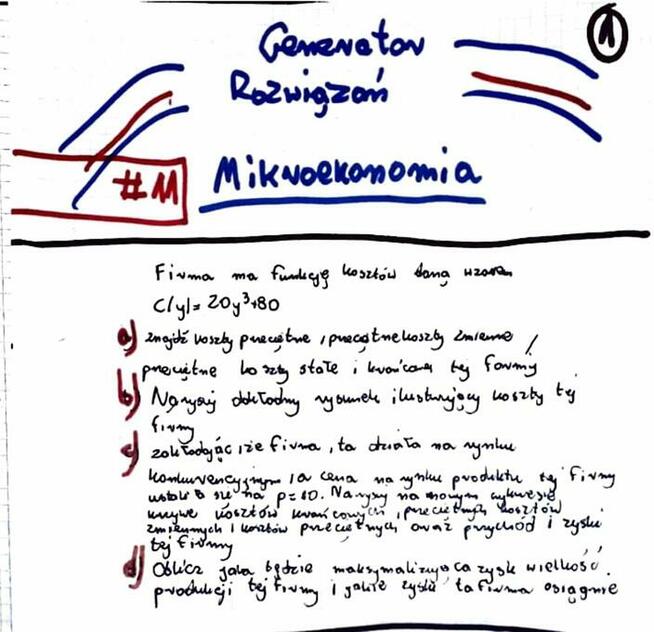 1
Generator
Rozwiązań
#M Mikroekonomia
Firma ma funkcję kosztów daną wzorem
C(y)=20y³+80
a) znajdź koszty przeciętne, przeciętne koszty zmienne,
przeciętne koszty stałe i krańcowe tej formy
b) Narysuj dokładny rysunek ilustrujący koszty tej
firmy
c) zakłodając że firma, ta działa na rynku
konkurencyjnym, a cena na rynku produktu tej firmy
ustala się na p=10. Narysuj na nowym wykresie
krzywe kosztów krańcowych, przeciętnych kosztów
zmiennych i kosztów przeciętnych oraz przychód i zyski
tej firmy
d) Oblicz jaka będzie maksymalizująca zysk wielkość
produkcji tej firmy i jakie zyski ta firma osiągnie